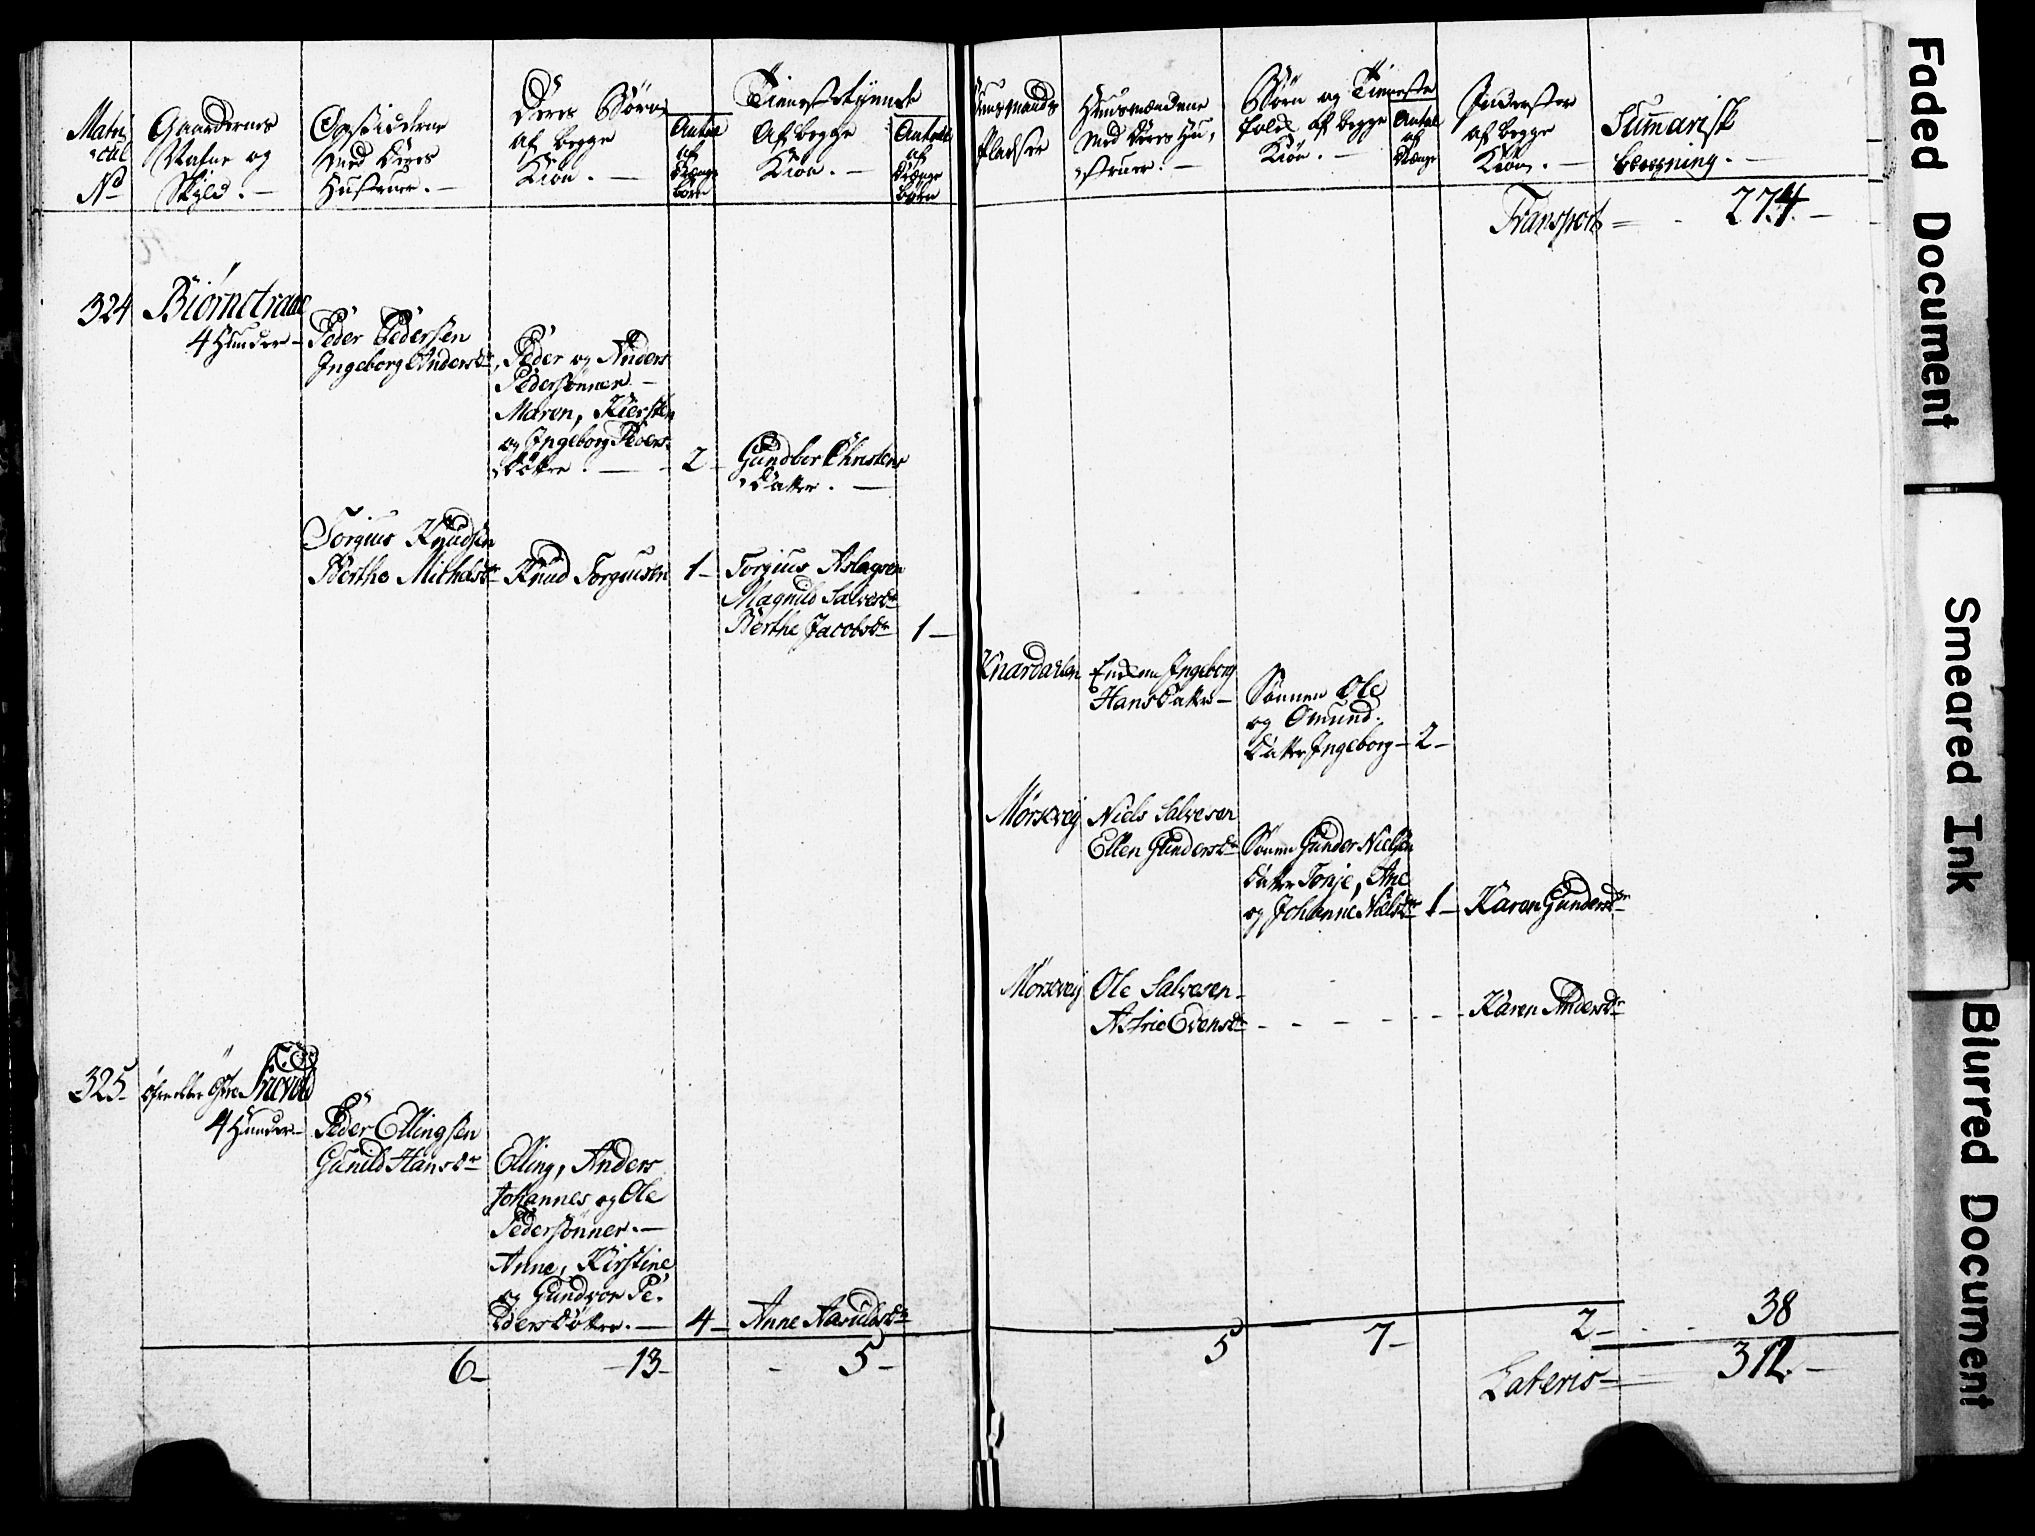 Matri
cul
No
Gaardernes
Nafne og
Skyld. —
Opsidderne
med deres
Hustruer. —
Deres Børn
af begge
Kiøn. —
Antal
af
Drænge
børn
Tienestetyende
Af begge
Kiøn. —
Antall
af
Drænge
børn
Huusmands
Pladser
Huusmændene
med deres Hu,
struer. —
Børn og Tieneste
folck af begge
Kiøn. —
Antal
af
Drænge
Inderster
af begge
Kiøn. —
Summarisk
beregning. —
Transport = - 274. —
324
Biørnetraae
4 Huuder —
Peder Pedersen
Ingeborg Andersdr.
Peder og Anders
Pedersønner —
Maren, Kiersten
og Ingeborg Peders
døttre . — 2 —
Gundbor Christens
datter . —
Torgius Knudsen
Berthe Michelsdr
Knud Torgiusen 1 —
Torgius Aslagsen
Magnild Salvesdr
Berthe Jacobsdr 1 —
Knardalen
Enken Ingeborg
Hansdatter —
Sønnen Ole
og Omund.
datter Ingeborg — 2 —
Morsevej
Niels Salvesen
Ellen Gundersdr
Sønnen Gunder Nielsen
datter Tonje, Ane
og Johanne Nielsdr 1 —
Karen Gundersdr
Morsevej
Ole Salvesen —
Astrie Evensdr - - - - -
Karen Andersdr
325
øfre eller Østre
4 Huuder —
Peder Ellingsen
Gunild Hansdr
Elling, Anders
Johannes og Ole
Pedersønner. —
Anne, Kirstine
og Gundvor Pe,
dersdøttre. — 4 —
Anne Aanildsdr
6 — 13 — - 5 —
5 7 — 2 — - - 38
Lateris = 312. —
Faded Document
Smeared Ink
Blurred Document